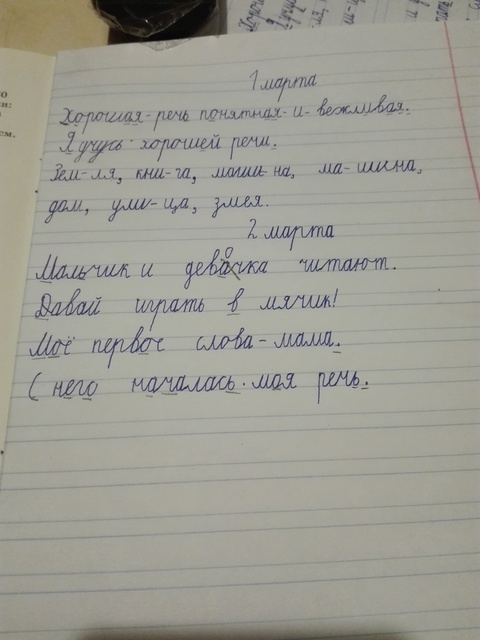 1 марта
Хорошая - речь понятная - и - вежливая.
Я учусь хорошей речи.
Зем-ля, кни-га, маши-на, ма-шина,
дом, ули-ца, змея.
2 марта
Мальчик и девочка читают.
Давай играть в мячик!
Моё первое слова - мама.
С него началась моя речь.